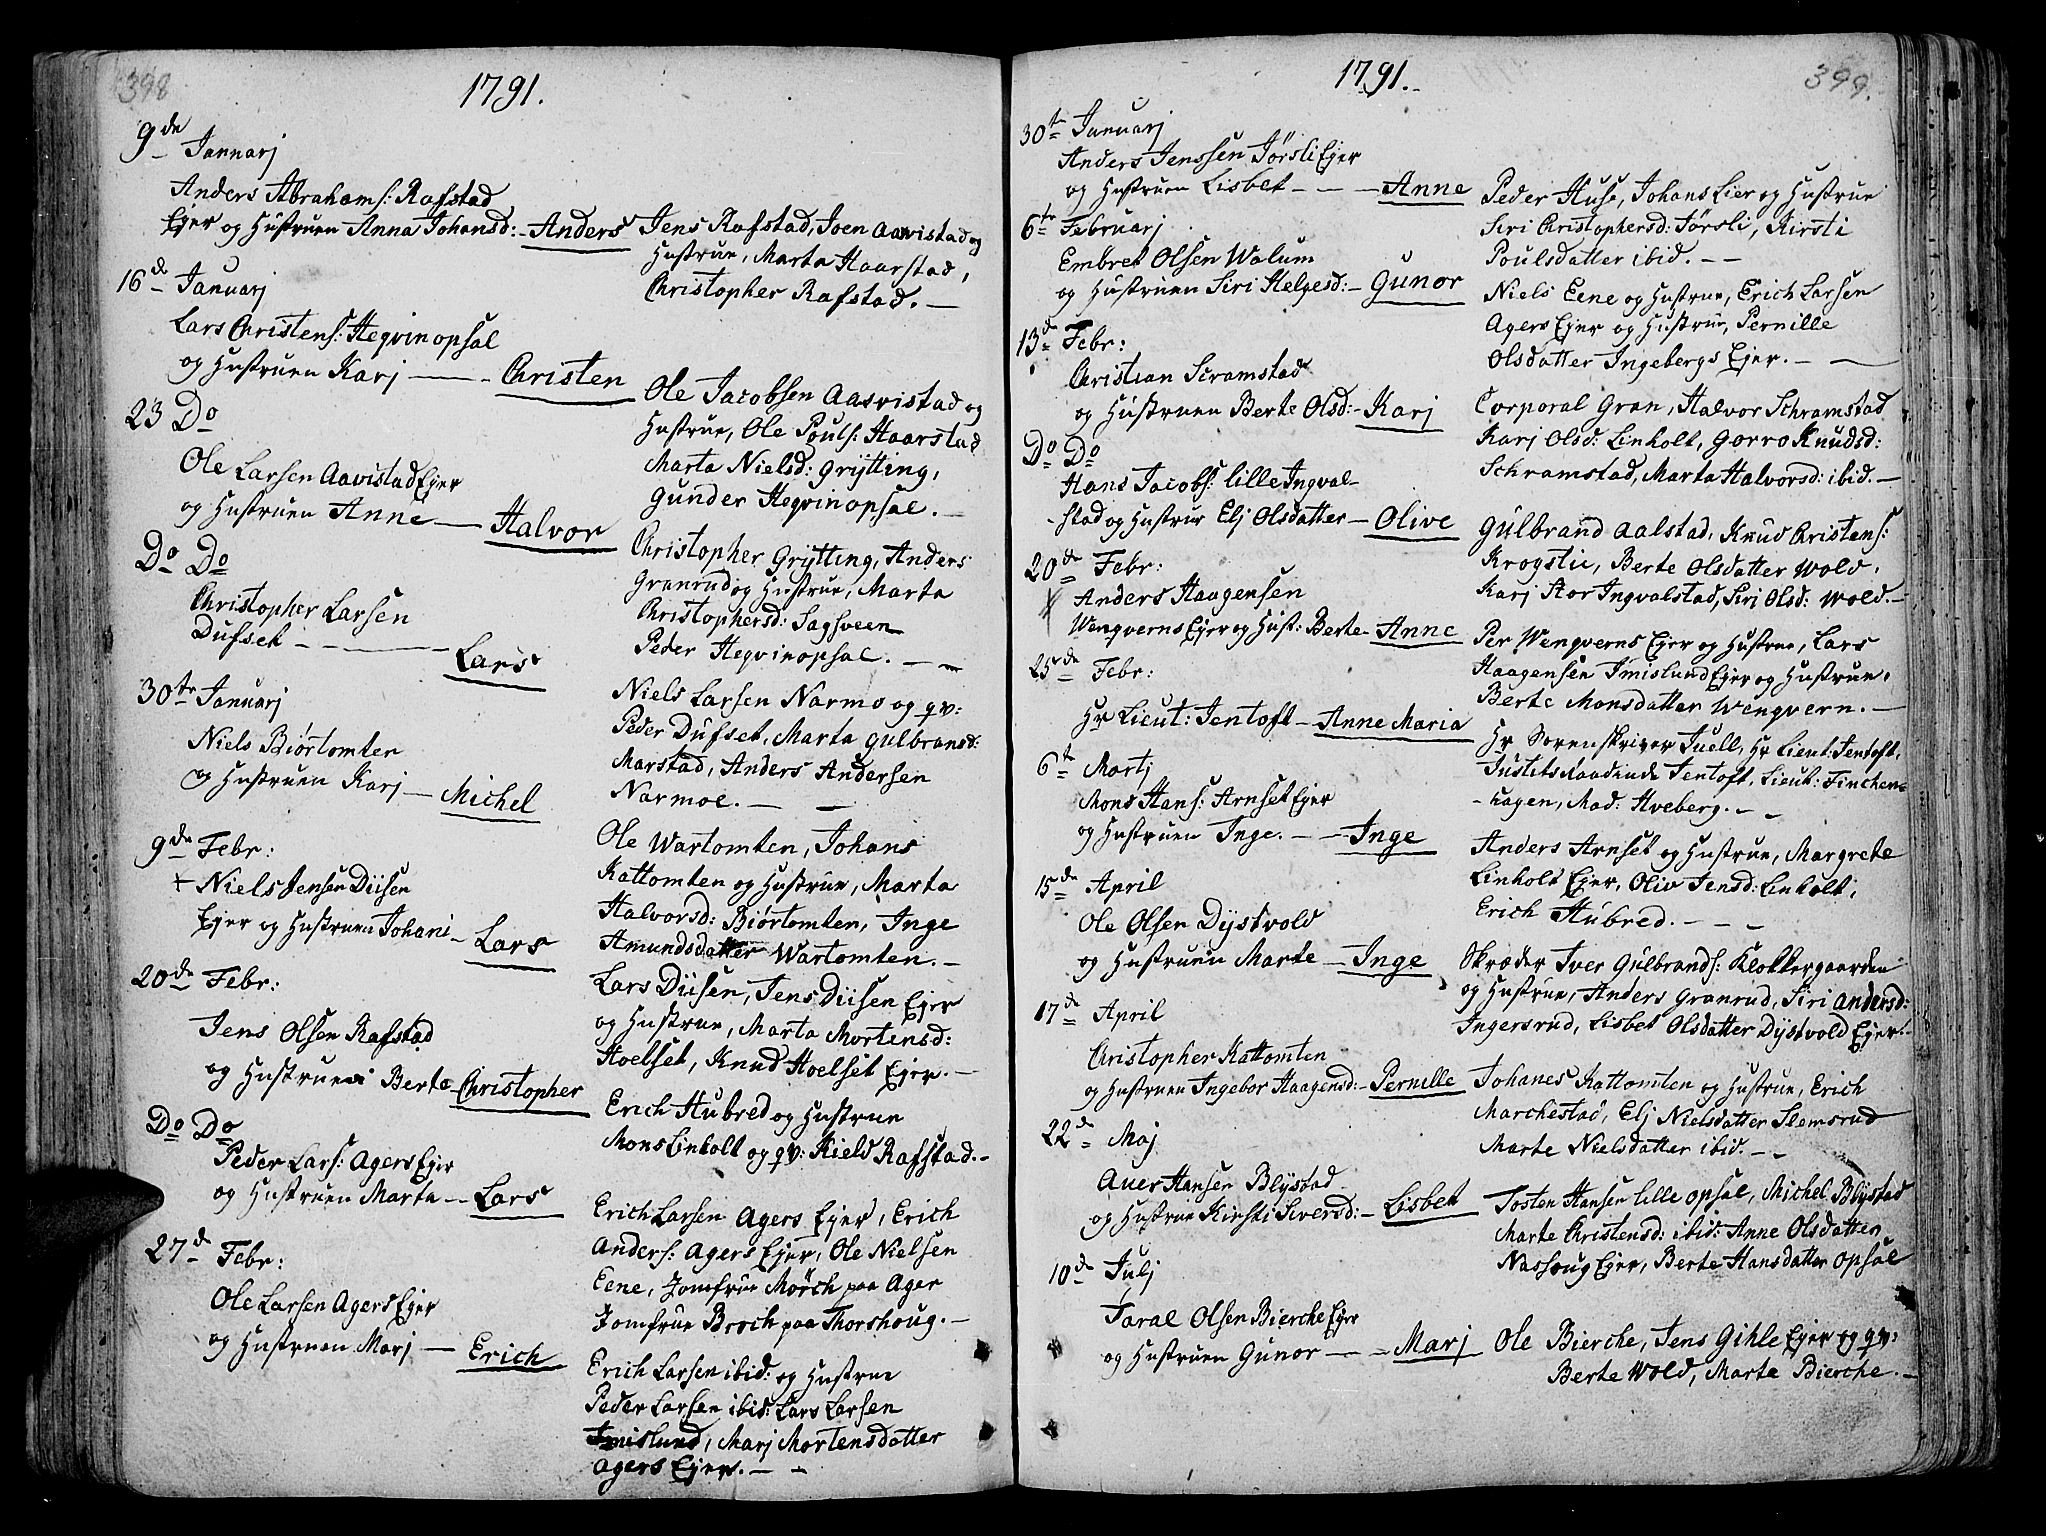 398
1791.
9de Januarj
Anders Abrahams: Rafstad
Ejer og Hustruen Anna Johansd:- Anders
Jens Rafstad, Joen Aavistad og
Hustrue, Marta Haarstad,
Christopher Rafstad.-
16de Januarj
Lars Christens: Hegvinopsal
og Hustruen Karj - Christen
Ole Jacobsen Aasvistad og
Hustrue, Ole Pouls: Haarstad
Marta Nielsd: Grÿtting,
Gunder Hegvinopsal.-
23 Do
Ole Larsen Aavistad Ejer
og Hustruen Anne - Halvor
Christopher Grÿtting, Anders
Granrud og Hustrue, Marta
Christophersd: Sagsveen
Peder Hegvinopsal.-
Do Do
Christopher Larsen
Dufset - Lars
Niels Larsen Narmo og qv:
Peder Dufset, Marta Gulbransd:
Marstad, Anders Andersen
Narmoe.-
30te Januarj
Niels Biørtomten
og Hustruen Karj - Michel
Ole Wartomten, Johans
Kattomten og Hustrue, Marta
Halvorsd: Biørtomten, Inge
Amundsdatter Wartomten.-
9de Febr:
+ Niels Jensen Diisen
Ejer og Hustruen Johani - Lars
Lars Diisen, Jens Diisen Ejer
og Hustrue, Marta Mortensd:
Hoelset, Knud Hoelset Ejer.-
20de Febr:
Jens Olsen Rafstad
og Hustruen Berte - Christopher
Erich Hubred og Hustrue
Mons Linholt og qv: Kield Rafstad.-
Do Do
Peder Lars: Agers Ejer
og Hustruen Marta - Lars
Erich Larsen Agers Ejer, Erich
Anders: Agers Ejer, Ole Nielsen
Eene, Jomfrue Mørch paa Ager
Jomfrue Broch paa Thorshoug.-
27de Febr:
Ole Larsen Agers Ejer
og Hustruen Marj - Erich
Erich Larsen ibid: og Hustrue
Peder Larsen ibid: Lars Larsen
Imislund, Marj Mortensdatter
Agers Ejer.-
399.
1791.
30te Januarj
Anders Jenssen Jørsli Ejer
og Hustruen Lisbet - Anne
Peder Huse, Johans Lier og Hustrue
Siri Christophersd: Jørsli, Kirsti
Poulsdatter ibid.-
6te Februarj
Embret Olsen Walum
og Hustruen Siri Helgesd:- Gunor
Niels Eene og Hustrue, Erich Larsen
Agers Ejer og Hustrue, Pernille
Olsdatter Ingebergs Ejer.-
13de Febr:
Christian Scramstad
og Hustruen Berte Olsd:- Karj
Corporal Gran, Halvor Schramstad
Karj Olsd: Linholt, Gorro Knudsd:
Schramstad, Marta Halvorsd: ibid.-
Do Do
Hans Jacobs: lille Ingval-
-stad og Hustrue Elj Olsdatter - Olive
Gulbrand Aalstad, Knud Christens:
Krogstie, Berte Olsdatter Wold,
Karj Stor Ingvalstad, Siri Olsd: Wold.-
20de Febr:
Anders Haagensen
Wengverns Ejer og Hust: Berte - Anne
Per Wengverns Ejer og Hustrue, Lars
Haagensen Imislund Ejer og Hustrue,
Berte Monsdatter Wengvern.-
25de Febr:
Hr Lieut: Jentoft - Anne Maria
Hr Sorenskriver Juell, Hr Lieut: Jentoft,
Justitsraadinde Jentoft, Lieut: Finchen-
-hagen, Mad: Hveberg.-
6te Martj
Mons Hans: Arnset Ejer
og Hustruen Inge.- Inge
Anders Arnset og Hustrue, Margrete
Linholt Ejer, Oliv Jensd: Linholt,
Erich Hubred.-
15de April
Ole Olsen Dÿstvold
og Hustruen Marte - Inge
Skræder Iver Gulbrands: Klokkergaarden
og Hustrue, Anders Granrud, Siri Andersd:
Ingersrud, Lisbet Olsdatter Dÿstvold Ejer.-
17de April
Christopher Kattomten
og Hustruen Ingebor Haagensd:- Pernille
Johanes Kattomten og Hustrue, Erich
Marchestad, Elj Nielsdatter Slemsrud
Marte Nielsdatter ibid.-
22de Maj
Auer Hansen Blÿstad
og Hustrue Kirsti Siversd:- Lisbet
Tosten Hansen lille Opsal, Michel Blÿstad
Marte Christensd: ibid: Anne Olsdatter
Nashoug Ejer, Berte Hansdatter Opsal
10de Julj
Taral Olsen Bierche Ejer
og Hustruen Gunor - Marj
Ole Bierche, Jens Gihle Ejer og qv:
Berte Wold, Marte Bierche.-